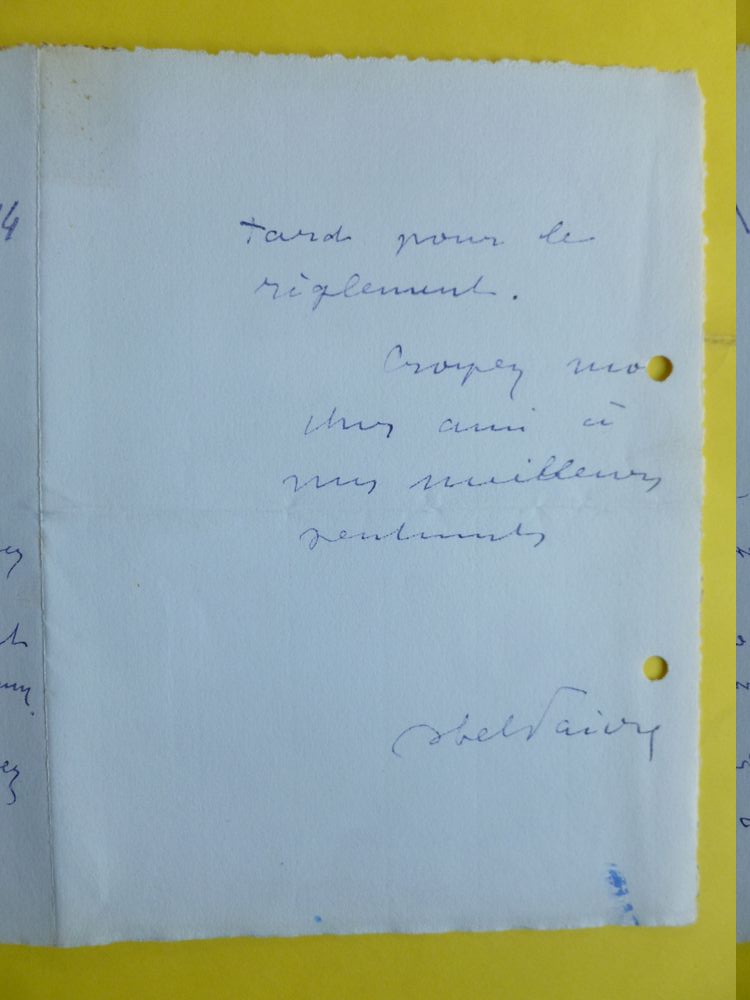 tard pour le
règlement.
Croyez mo
cher ami à
mes meilleurs
sentiments
Abel Faivre